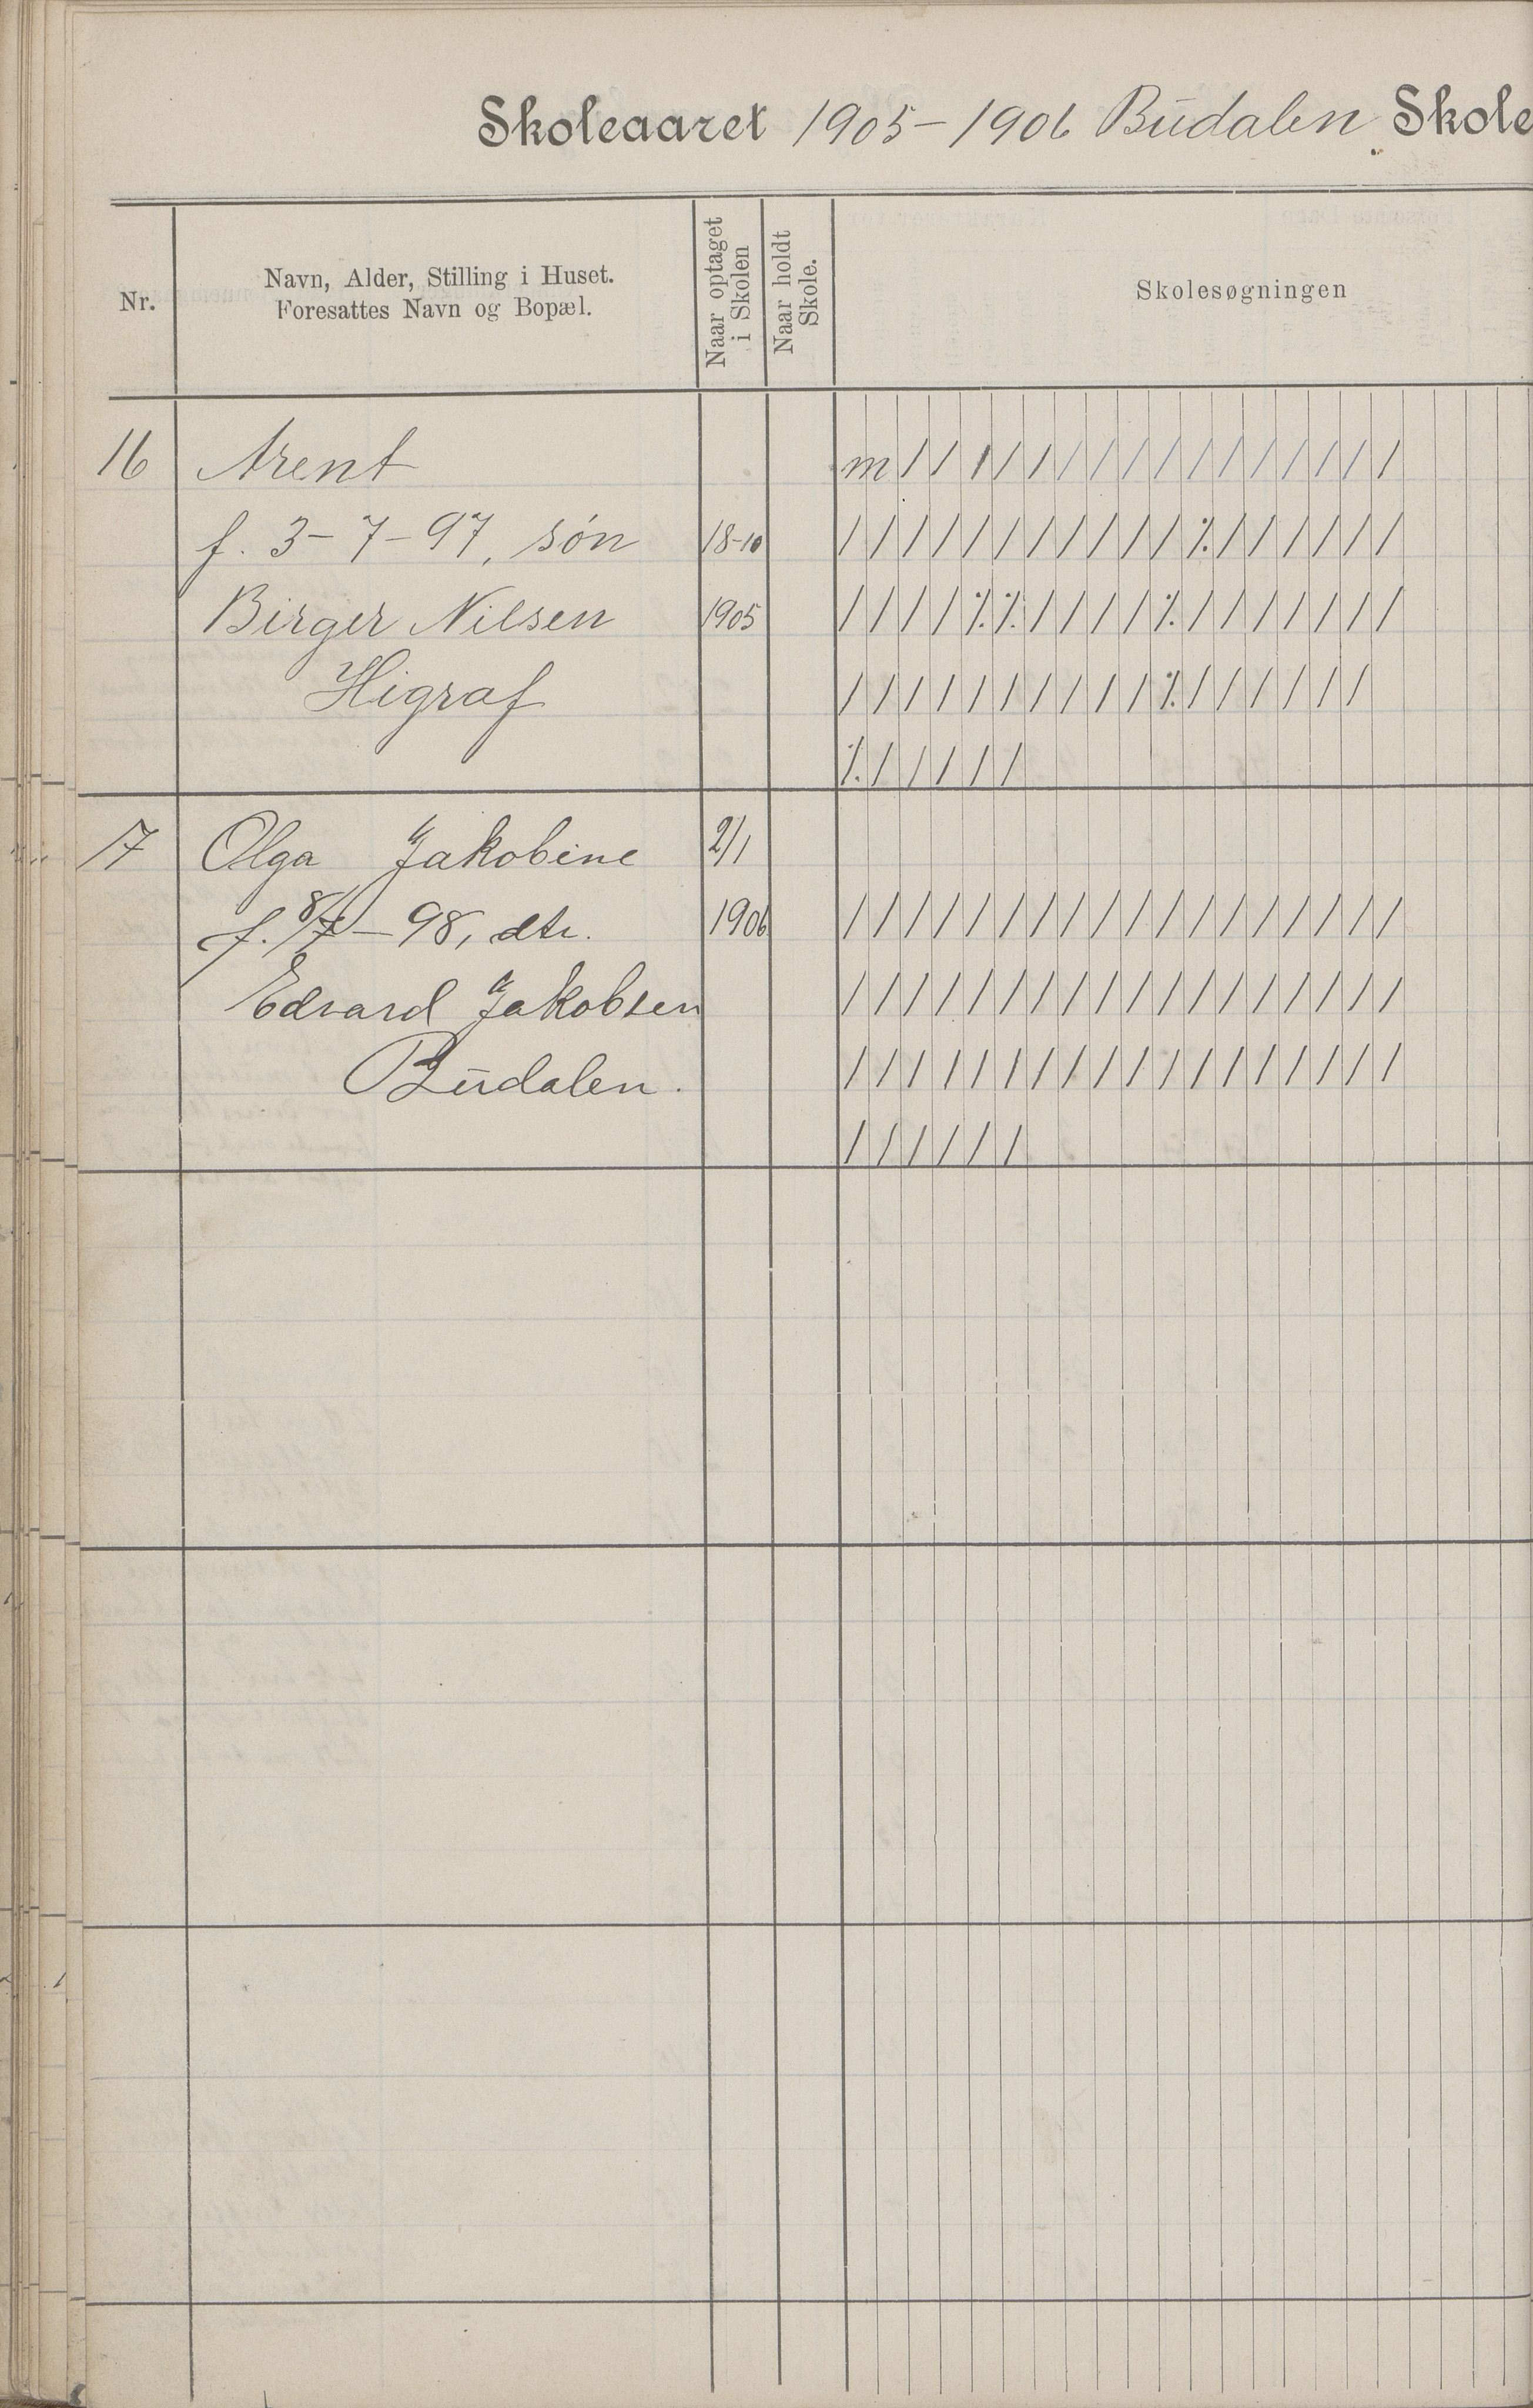 Skoleaaret 1905-1906 Budalen Skole
Nr.
Navn, Alder, Stilling i Huset.
Foresattes Navn og Bopæl.
Naar optaget
i Skolen
Naar holdt
Skole.
Skolesøgningen
16 Arent m / / / / / / / / / / / / / / / / /
f. 3-7-97, søn 18-10 / / / / / / / / / / / ٪ / / / / / /
Birger Nilsen 1905 / / / / ٪ ٪ / / / / ٪ / / / / / / /
Higraf / / / / / / / / / / ٪ / / / / / /
٪ / / / / /
17 Olga Jakobine 2/1
f. 8/7-98, dtr. 1906 / / / / / / / / / / / / / / / / / /
Edvard Jakobsen / / / / / / / / / / / / / / / / / /
Budalen. / / / / / / / / / / / / / / / / / /
/ / / / / /